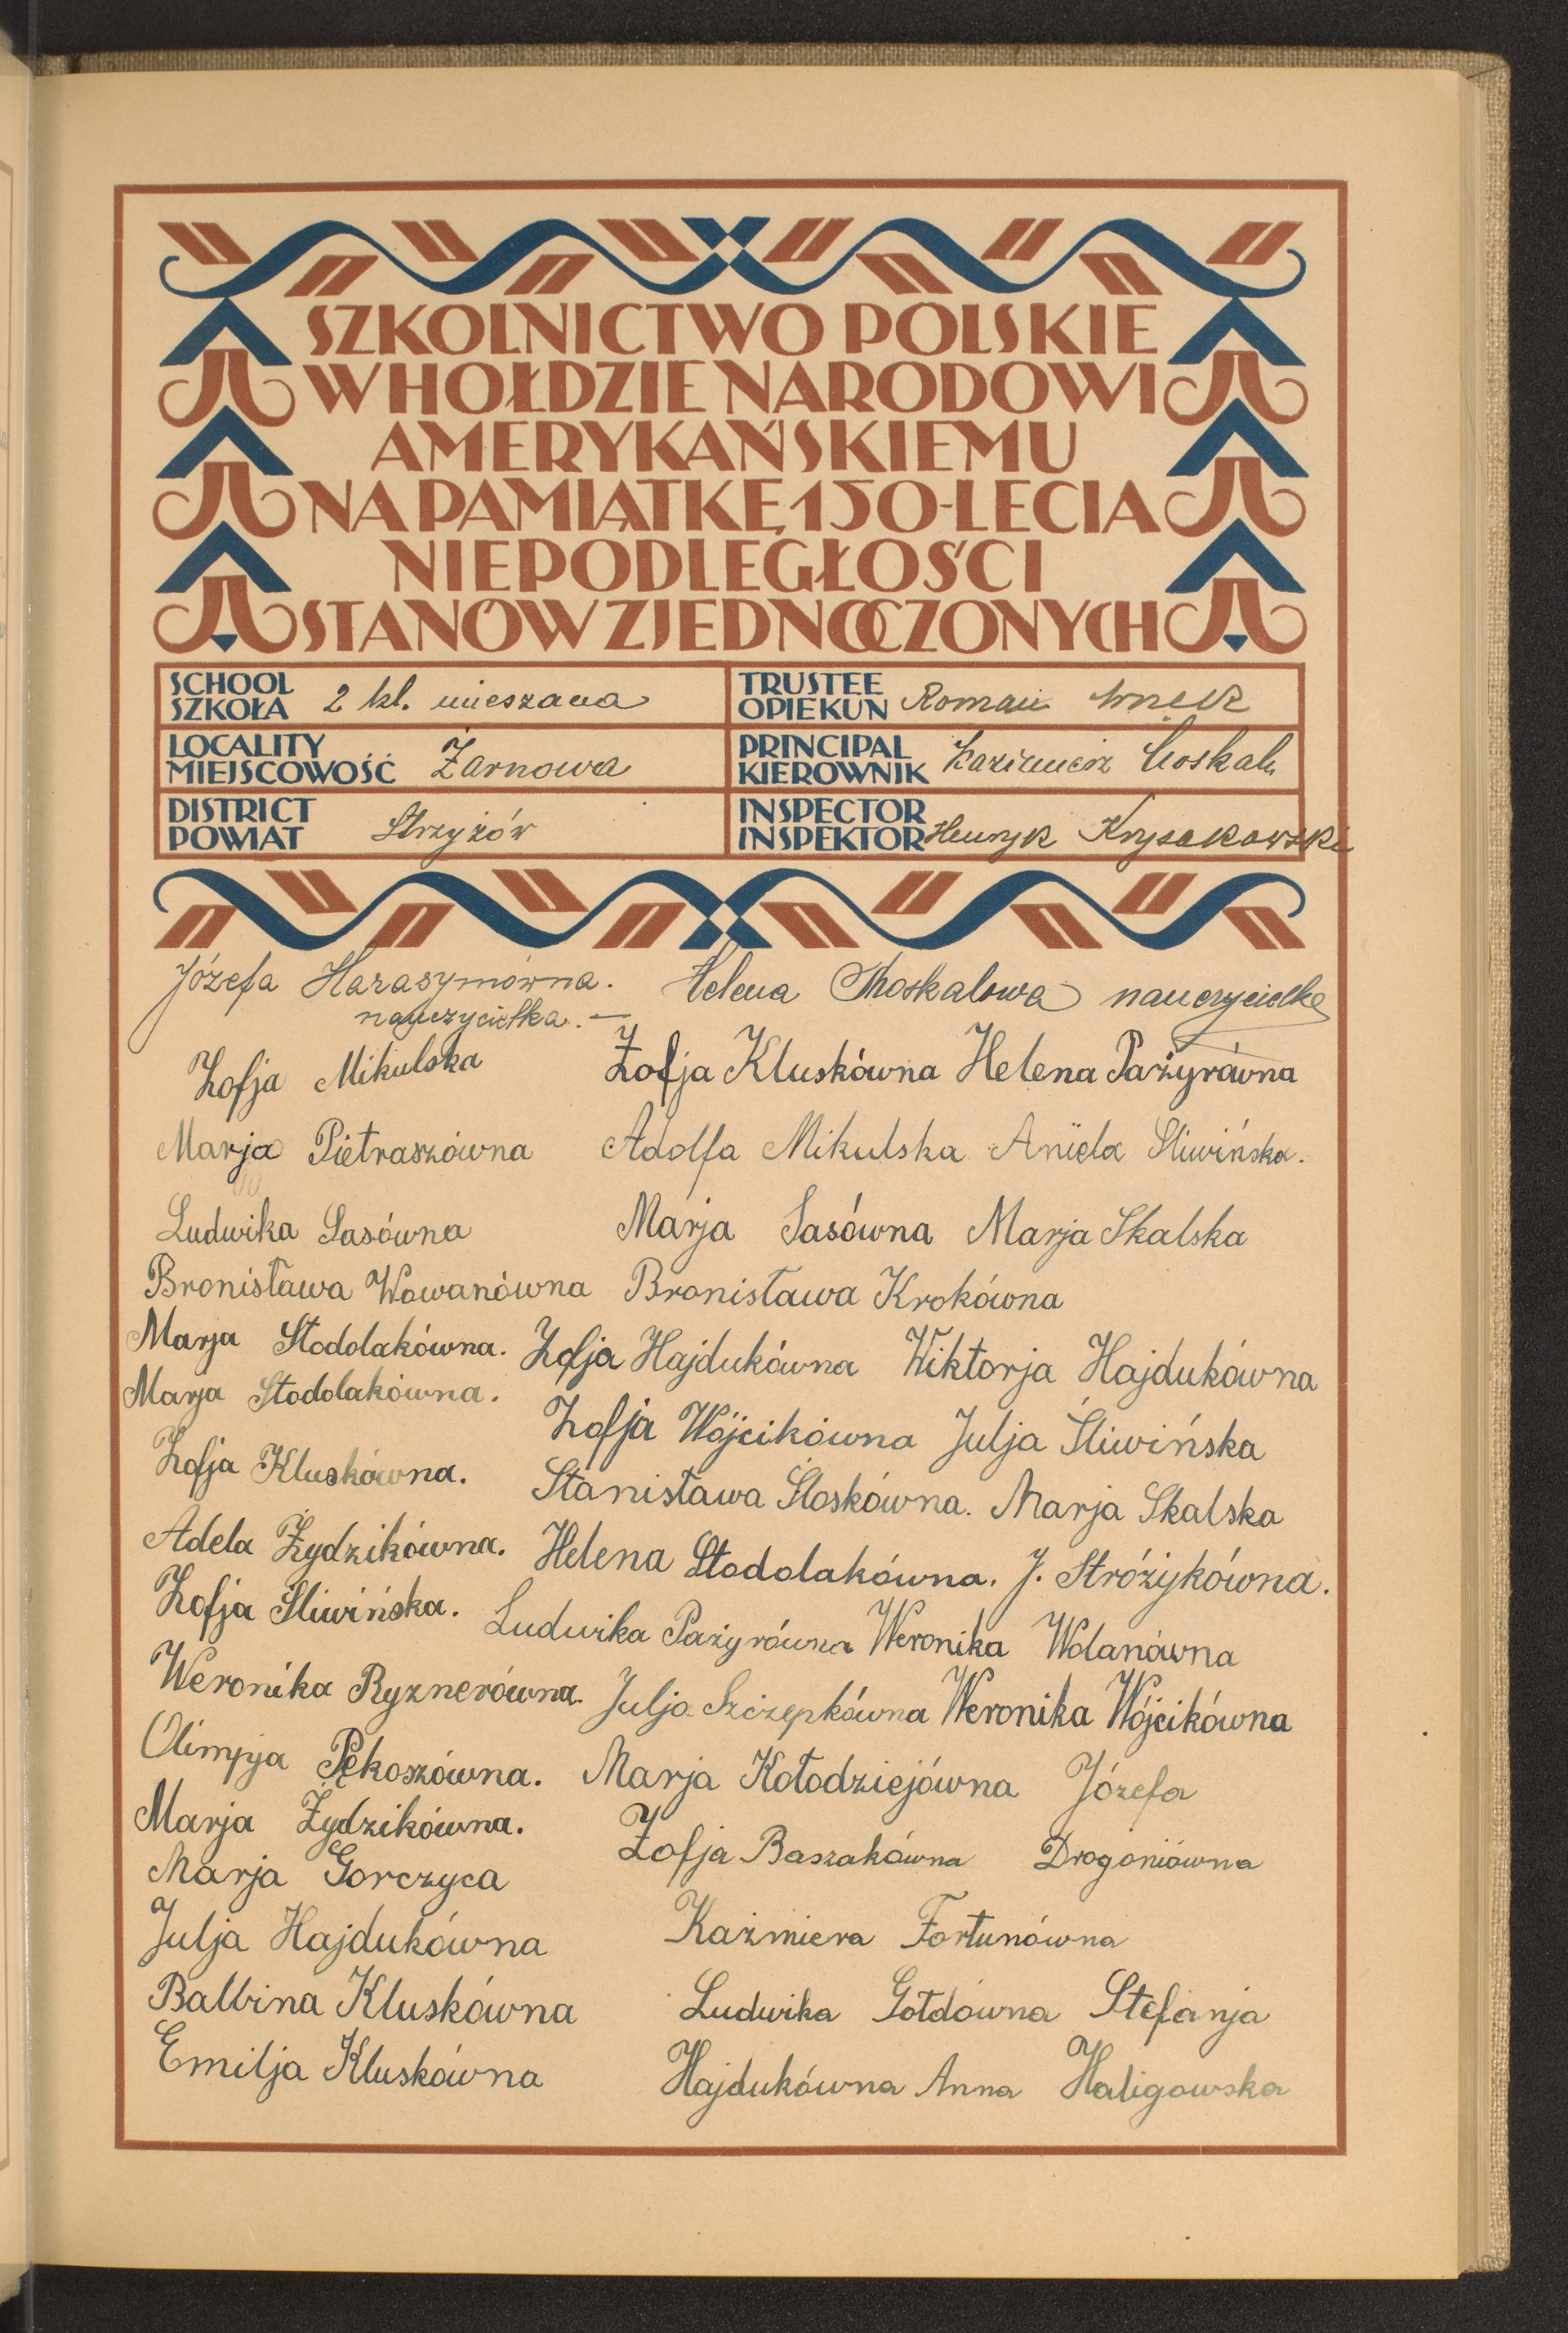 SZKOLNICTWO POLSKIE
W HOŁDZIE NARODOWI
AMERYKAŃSKIEMU
NA PAMIĄTKĘ 150-LECIA
NIEPODLEGŁOŚCI
STANÓW ZJEDNOCZONYCH
SCHOOL
SZKOŁA 2 kl. mieszana
TRUSTEE
OPIEKUN Roman
LOCALITY
MIEJSCOWOŚĆ Żarnowa
PRINCIPAL
KIEROWNIK Kazimierz Moskal
DISTRICT
POWIAT Strzyżów
INSPECTOR
INSPEKTOR Henryk
Józefa Harasymówna. Helena Moskalowa nauczycielka
nauczycielka.—
Zofja Mikulska Zofja Kluskówna Helena Pażyrówna
Marja Pietraszówna Adolfa Mikulska Aniela Śliwińska.
Ludwika Sasówna Marja Sasówna Marja Skalska
Bronisława Wowanówna Bronisława Krokówna
Marja Stodolakówna. Zofja Hajdukówna Wiktorja Hajdukówna
Marja Stodolakówna. Zofja Wójcikówna Julja Śliwińska
Zofja Kluskówna. Stanisława Śloskówna. Marja Skalska
Adela Żydzikówna. Helena Stodolakówna. J. Stróżykówna.
Zofja Śliwińska. Ludwika Pażyrówna Weronika Wolanówna
Weronika Ryznerówna. Julja Szczepkówna Weronika Wójcikówna
Olimpja Pękoszówna. Marja Kołodziejówna Józefa
Marja Żydzikówna. Zofja Baszakówna Drogoniówna
Marja Gorczyca
Julja Hajdukówna Kaźmiera Fortunówna
Balbina Kluskówna Ludwika Gołdówna Stefanja
Emilja Kluskówna Hajdukówna Anna Haligowska